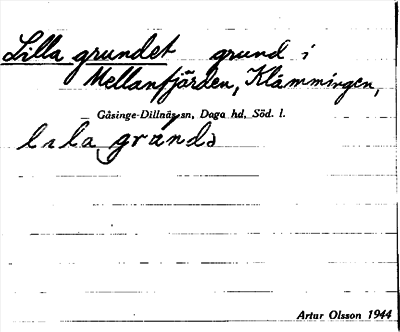 Lilla grundet grund i
Mellanfjärden, Klämmingen,
Gåsinge-Dillnäs sn, Daga hd, Söd. l.
Artur Olsson 1944